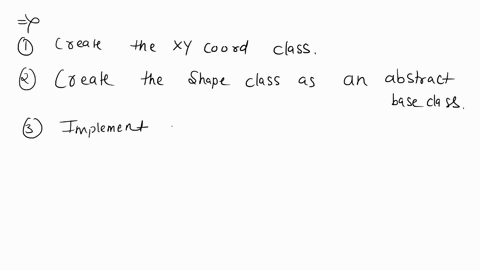 =>
① Create the XY coord class.
② Create the Shape class as an abstract
base class.
③ Implement